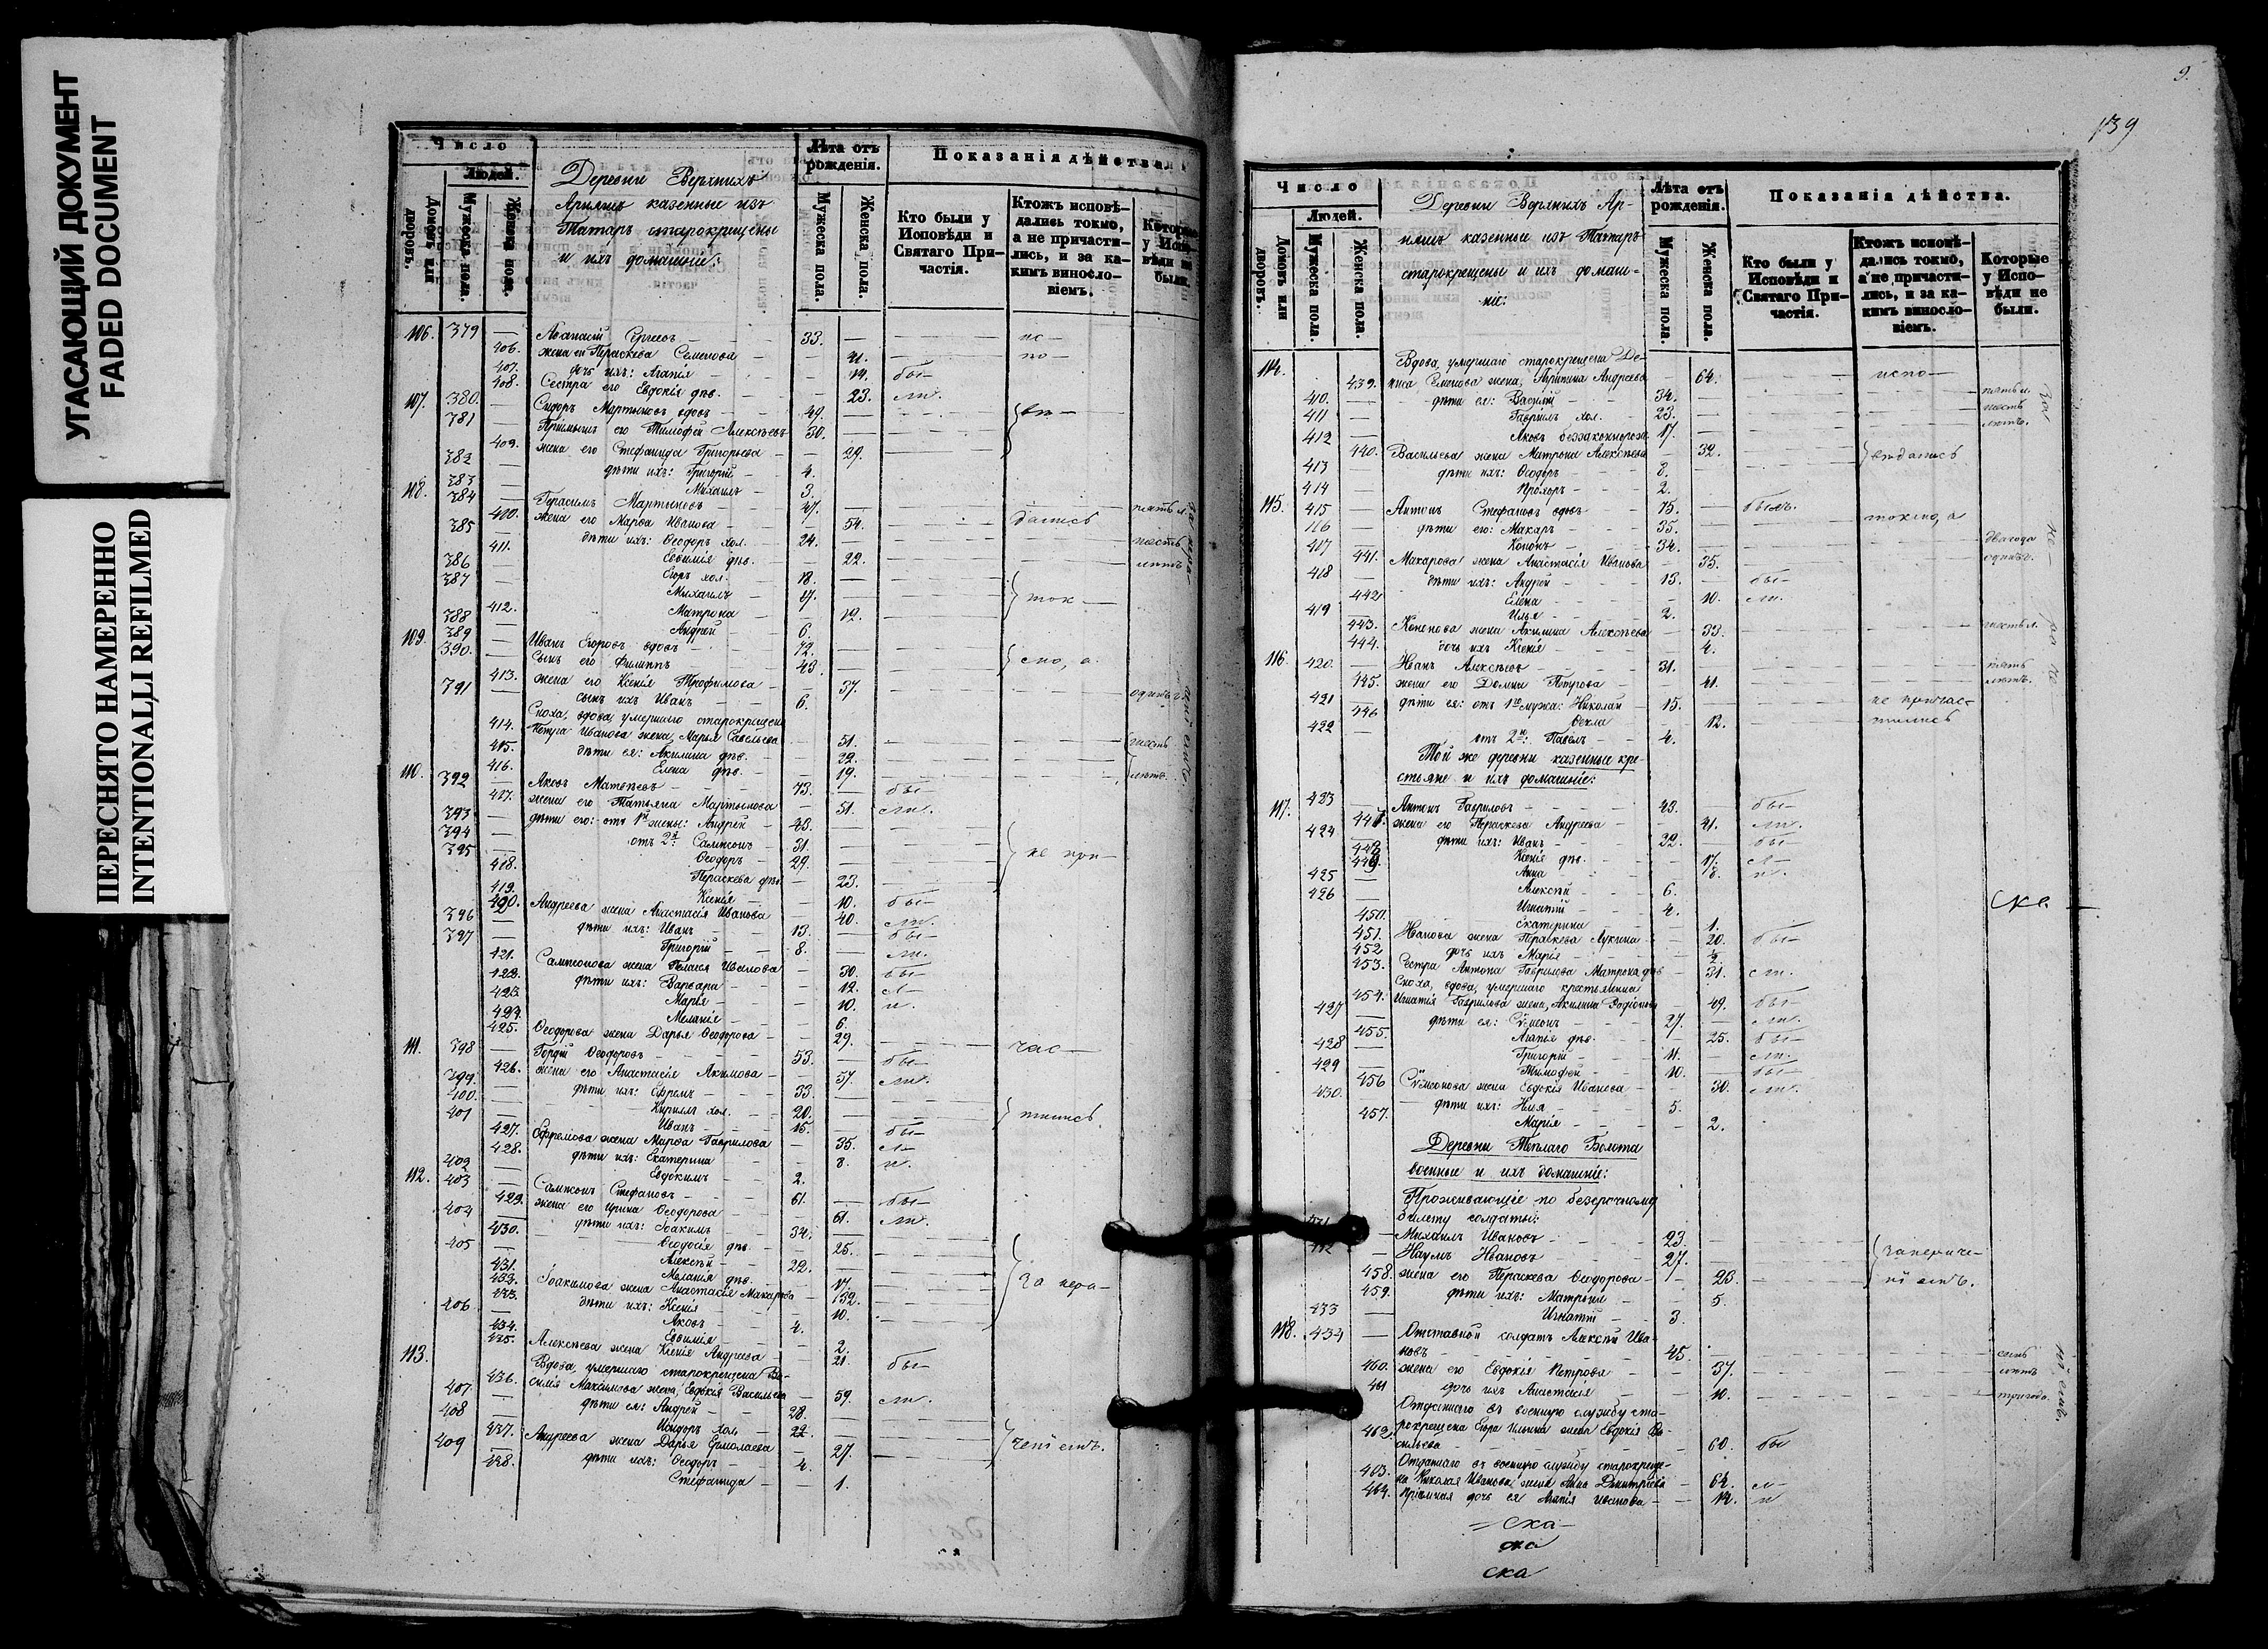 УГАСАЮЩИЙ ДОКУМЕНТ
FADED DOCUMENT
ПЕРЕСНЯТО НАМЕРЕННО
INTENTIONALLI REFILMED
Число
Людей.
Домовъ или дворовъ.
Мужеска пола.
Женска пола.
Деревни Верхнихъ
Аришъ казенные изъ
Татаръ старокрещены
и ихъ домашніе:
Лѣта отъ рожденія.
Мужеска пола.
Женска пола.
Показанія дѣйства
Кто были у Исповѣди и Святаго Причастія.
Ктожъ исповѣдались токмо, а не причастились, и за какимъ винословіемъ.
Которые у Исповѣди не были.
106. 379 — Аѳанасій Сергеевъ 33. — ис—
406. жена его Параскева Семенова — 41. по
407. дочь ихъ: Агапія — 14. бы—
408. Сестра его Евдокія дѣв. — 23. ли.
107. 380. — Сидоръ Мартыновъ вдовъ 49. — вѣ—
381 — Пріемышъ его Тимофей Алексѣевъ 30.
409. жена его Стефанида Григорьева — 29.
382 — дѣти ихъ: Григорій 4.
383 — Михаилъ 3.
108. 384 — Герасимъ Мартыновъ 47. — пять л.
410. жена его Марѳа Иванова — 54. дались
385 — дѣти ихъ: Ѳеодоръ хол. 24. — шесть
411. Евѳимія дѣв. — 22. лѣтъ
386 — Егоръ хол. 18.
387 — Михаилъ 17. ток—
412. Матрона — 12.
388 — Андрей 6.
109. 389 — Иванъ Егоровъ вдовъ 72.
390. — Сынъ его Филиппъ 43. смо, а
413. жена его Ксенія Трофимова — 37.
391 — сынъ ихъ Иванъ 6. одинъ
Сноха, вдова, умершаго старокрещена
414. Петра Иванова жена, Марья Савельева 51. шесть
415. дѣти ея: Акилина дѣв. 22.
416. Елена дѣв. 19. лѣтъ.
110. 392 — Яковъ Матвѣевъ 73. — бы—
417. жена его Татьяна Мартынова — 51. ли.
393 — дѣти его: отъ 1й жены: Андрей 43.
394 — отъ 2й: Сампсонъ 31. не при—
395 — Ѳеодоръ 29.
418. Параскева дѣв. — 23.
419. Ксенія — 10. бы—
420. Андреева жена Анастасія Иванова — 40. ли.
396 — дѣти ихъ: Иванъ 13. бы—
397 — Григорій 8. — ли.
421. Сампсонова жена Пелагея Иванова — 30. бы—
422. дѣти ихъ: Варвара — 12. л—
423. Марья — 10. и.
424. Меланія — 6.
425. Ѳеодорова жена Дарья Ѳеодорова — 29. час—
111. 398 — Гордій Ѳеодоровъ 53. — бы—
426. жена его Анастасія Акимова — 57. ли.
399. — дѣти ихъ: Ефремъ 33.
400. — Кириллъ хол. 20. тились.
401 — Иванъ 15. — бы—
427. Ефремова жена Марѳа Гаврилова — 35. л—
428. дѣти ихъ: Екатерина — 8. и.
402 — Евдокимъ 2.
112. 403 — Сампсонъ Стефановъ 61. — бы—
429. жена его Ирина Ѳеодорова — 61. ли.
404 — дѣти ихъ: Іоакимъ 34.
430. Ѳеодосія дѣв. — 25.
405 — Алексѣй 22.
431. Меланія дѣв. — 17.
432. Іоакимова жена Анастасія Макарова — 32. За нера—
433. дѣти ихъ: Ксенія — 10.
406 — Яковъ 4.
434. Евѳимія — 2.
435. Алексѣева жена Ксенія Андреева — 21. бы—
113. Вдова, умершаго старокрещена Ва-
436. силія Максимова жена, Евдокія Васильева — 59. ли.
407 — дѣти ея: Андрей 28.
408 — Исидоръ хол. 22.
437. Андреева жена Дарья Ермолаева — 27. ченіемъ.
409 — дѣти ихъ: Ѳеодоръ 4.
438. Стефанида — 1.
9.
139
Число
Людей.
Домовъ или дворовъ.
Мужеска пола.
Женска пола.
Деревни Верхнихъ Ар-
ишъ казенные изъ Татаръ
старокрещены и ихъ домаш-
ніе:
Лѣта отъ рожденія.
Мужеска пола.
Женска пола.
Показанія дѣйства.
Кто были у Исповѣди и Святаго Причастія.
Ктожъ исповѣдались токмо, а не причастились, и за какимъ винословіемъ.
Которые у Исповѣди не были.
114. Вдова, умершаго старокрещена Де-
439. Семенова жена, Андреева 64. испо—
410. — дѣти ея: Василій 34. — пять л.
411 — Гавріилъ хол. 23. шесть
412 — Яковъ беззаконнорож. 17. лѣтъ.
440. Васильева жена Матрона Алексѣева — 32. вѣдались
413 — дѣти ихъ: Ѳеодоръ 8.
414 — Прохоръ 2.
115. 415 — Антонъ Стефановъ вдовъ 75. — былъ. токмо, а
416 — дѣти его: Макаръ 35.
417 — Кононъ 34. — два года
441. Макарова жена Анастасія Иванова — 35. одинъ г.
418 — дѣти ихъ: Андрей 13. — бы—
442 Елена — 10. ли.
419 — Илья 2.
443. Кононова жена Акилина Алексѣева — 33. шесть л.
444. дочь ихъ Ксенія — 4.
116. 420. — Иванъ Алексѣевъ 31. — пять
445. жена его Домна Петрова — 41. лѣтъ.
421 — дѣти ея: отъ 1го мужа: Николай 15. не причас-
446 Ѳекла — 12. тились
422 — отъ 2го: Павелъ 4.
Той же деревни казенные кре-
стьяне и ихъ домашніе:
117. 423 — Антонъ Гавриловъ 43. — бы—
447. жена его Параскева Андреева — 41. ли.
424 — дѣти ихъ: Иванъ 22. — бы—
448 Ксенія дѣв. — 17. л—
449. Анна — 8. и.
425 — Алексѣй 6.
426 — Игнатій 4. ске.
450. Екатерина — 1.
451. Иванова жена Параскева Лукина — 20. бы—
452 дочь ихъ Марія — 2.
453. Сестра Антона Гаврилова Матрона дѣв. 31. ли.
Сноха, вдова, умершаго крестьянина
454. Игнатія Гаврилова жена, Акилина Родіонова 49. бы—
427 — дѣти ея: Сѵмеонъ 27. — ли.
455. Агапія дѣв. — 25. бы—
428 — Григорій 11. — ли.
429 — Тимофей 10. — бы—
456 Сѵмеонова жена Евдокія Иванова — 30. ли.
430. — дѣти ихъ: Илья 5.
457. Марія — 2.
Деревни Теплаго Болота
военные и ихъ домашніе:
Проживающіе по безсрочному
билету солдаты:
Михаилъ Ивановъ 23.
Наумъ Ивановъ 27. за нераче-
458. жена его Параскева Ѳеодорова — 23. ніемъ.
459. дѣти ихъ: Матрона — 5.
433 — Игнатій 3.
118. 434 — Отставной солдатъ Алексѣй Ива-
новъ 45. — семь
460. жена его Евдокія Петрова — 37. лѣтъ
461 дочь ихъ Анастасія — 10. тригод.
Отданнаго въ военную службу ста-
462. рокрещена Егора Ильина жена Евдокія Ва-
сильева — 60. бы
Отданнаго въ военную службу старокреще-
463. на Николая Иванова жена Анна Димитріева — 64. л—
464. Пріемная дочь ея Агапія Иванова — 14. и
ска
ска
ска